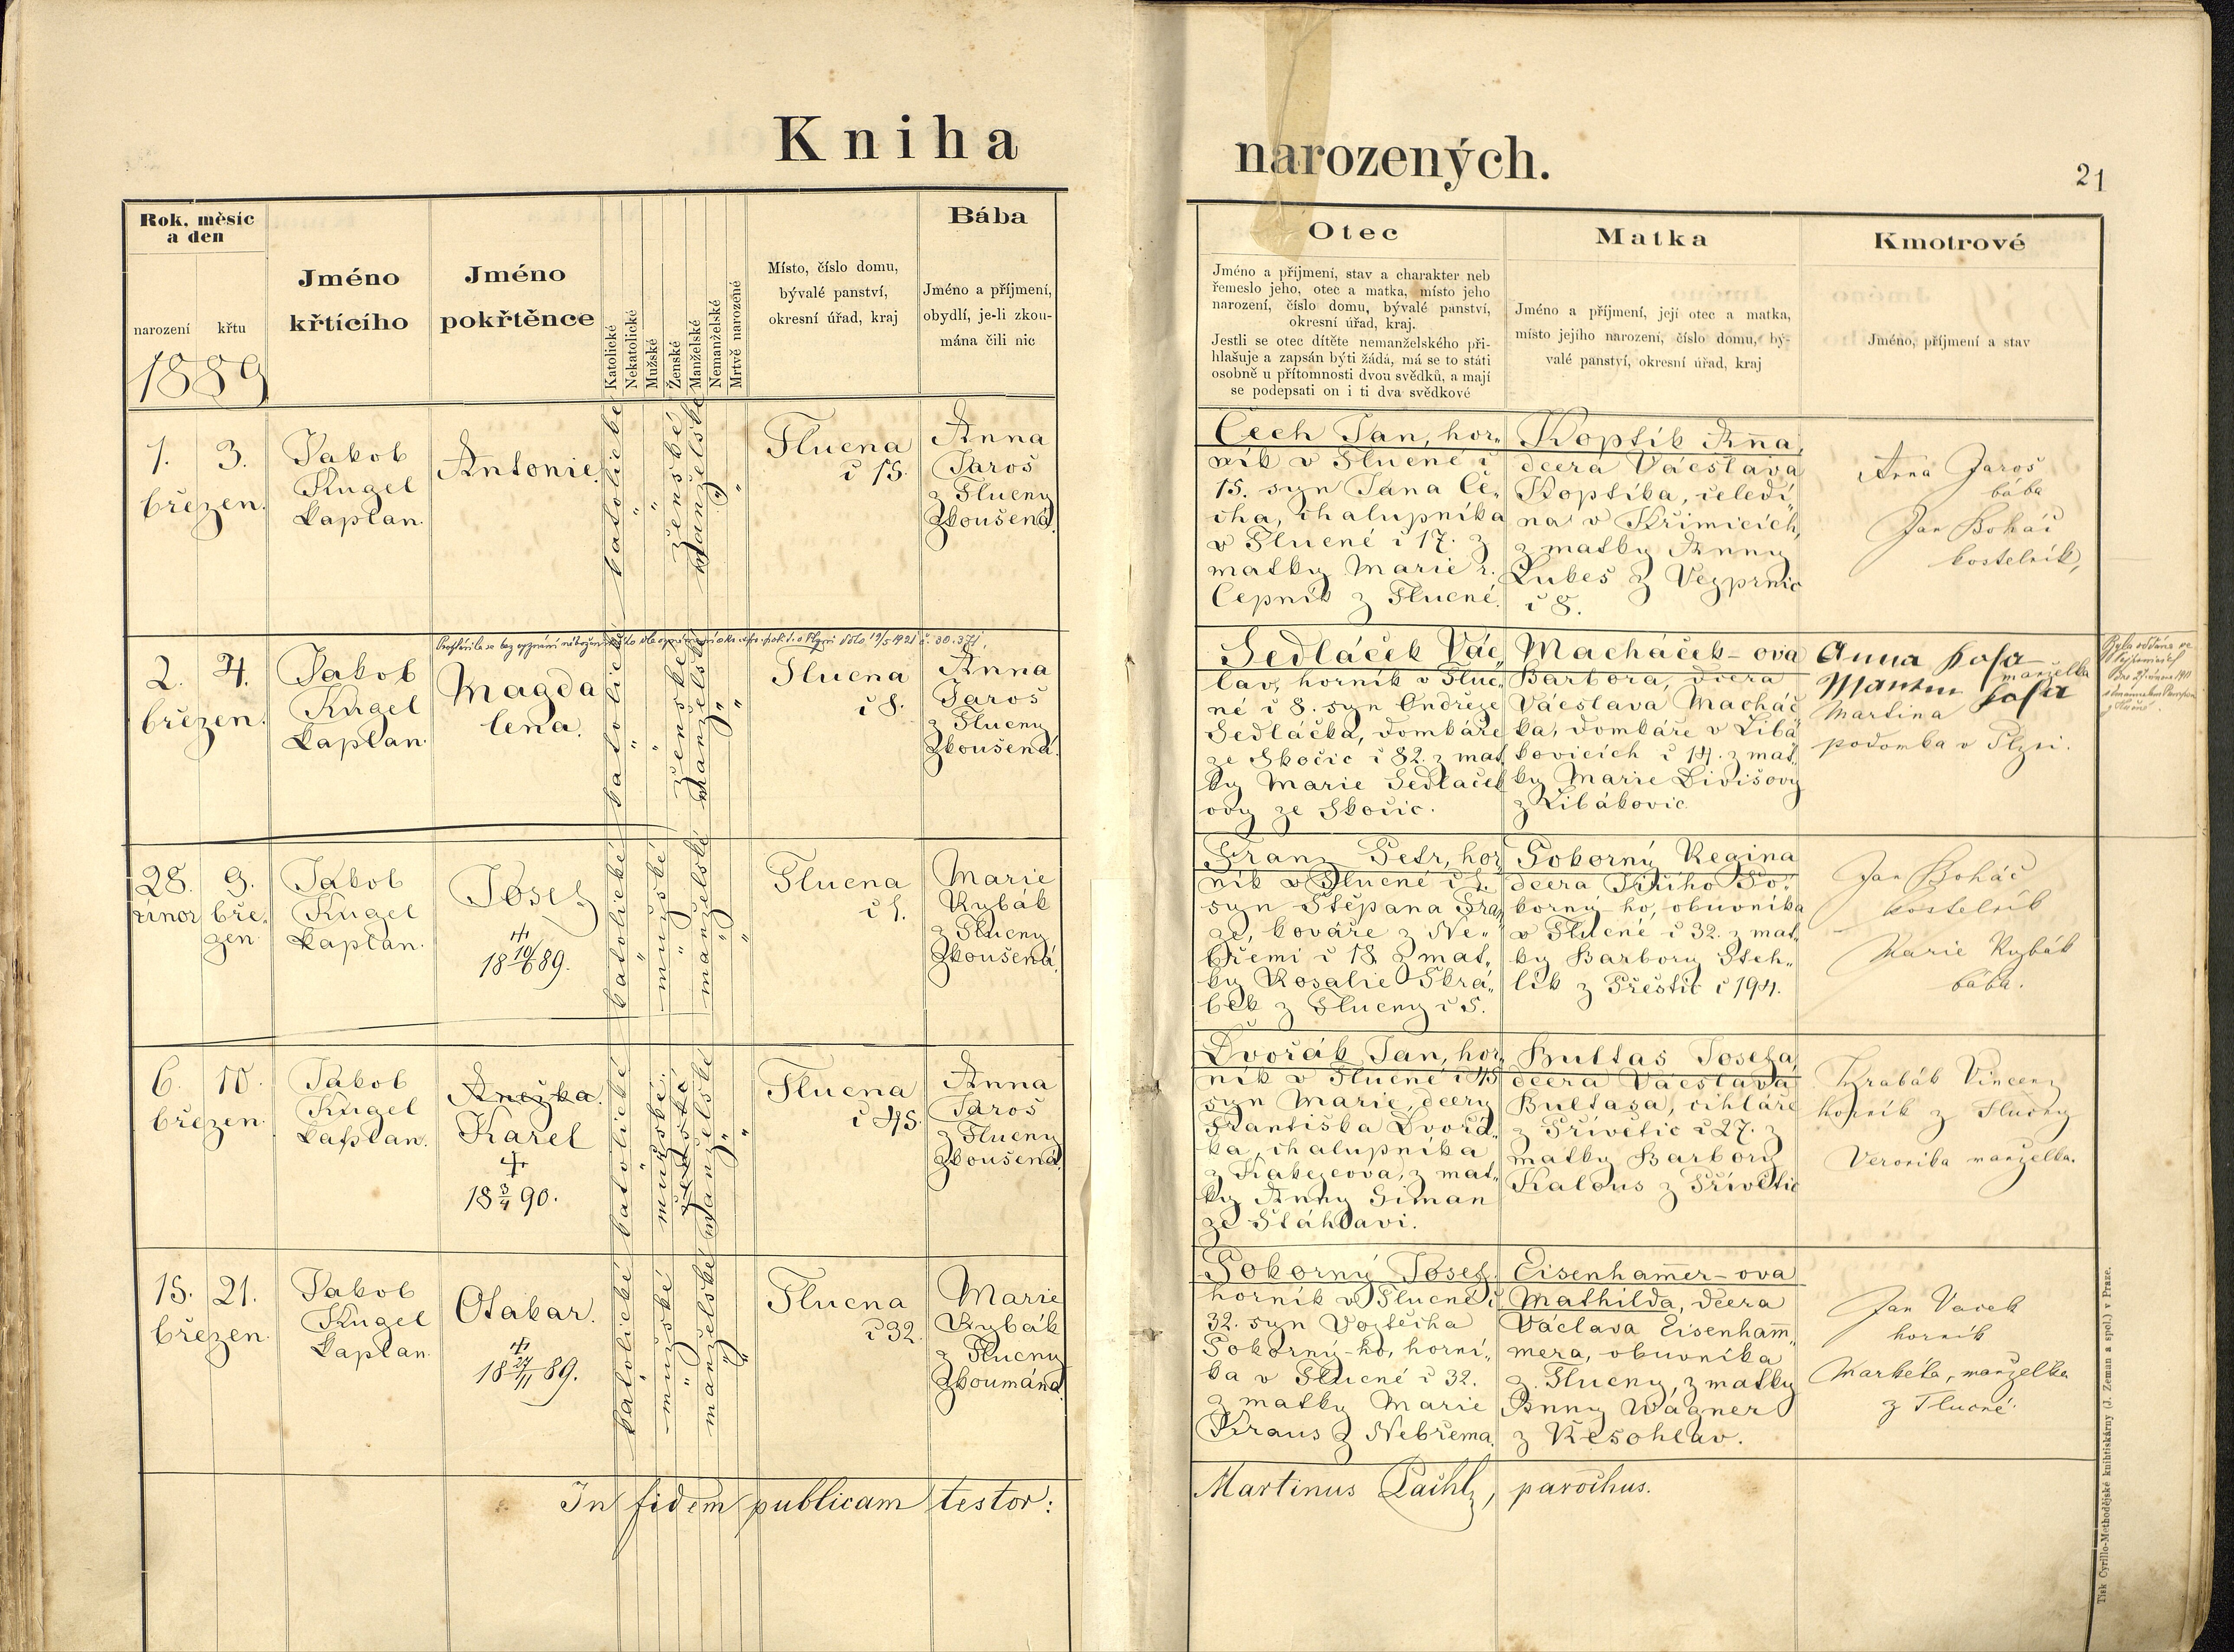 Kniha
narozených.
21
Rok, měsíc
a den
narození
křtu
1889
Jméno
křtícího
Jméno
pokřtěnce
Katolické
Nekatolické
Mužské
Ženské
Manželské
Nemanželské
Mrtvě narozené
Místo, číslo domu,
bývalé panství,
okresní úřad, kraj
Bába
Jméno a příjmení,
obydlí, je-li zkou-
mána čili nic
Otec
Jméno a příjmení, stav a charakter neb
řemeslo jeho, otec a matka, místo jeho
narození, číslo domu, bývalé panství,
okresní úřad, kraj.
Jestli se otec dítěte nemanželského při-
hlašuje a zapsán býti žádá, má se to státi
osobně u přítomnosti dvou svědků, a mají
se podepsati on i ti dva svědkové
Matka
Jméno a příjmení, její otec a matka,
místo jejího narození, číslo domu, bý-
valé panství, okresní úřad, kraj
Kmotrové
Jméno, příjmení a stav
1. 3.
březen.
Jakob
Kugel
kaplan.
Antonie.
katolické
"
"
ženské
manželské
"
"
Tlucna
č 15.
Anna
Jaroš
z Tlucny
Zkoušená.
Čech Jan, hor„
ník v Tlucné č
15. syn Jana Če„
cha, chalupníka
v Tlucné č 17. z
matky Marie r.
Čepník z Tlucné.
Koptík Anna,
dcera Václava
Koptíka, čeledí„
na v Křimicích,
z matky Anny
Lukeš z Vejprnic
č 8.
Anna Jaroš
bába
Jan Boháč
kostelník,
2. 4.
březen.
Jakob
Kugel
kaplan.
Magda
lena.
katolické
"
"
ženské
manželské
"
"
Tlucna
č 8.
Anna
Jaroš
z Tlucny
Zkoušená.
Sedláček Vác„
lav, horník v Tluc„
né č 8. syn Ondřeje
Sedláčka, domkáře
ze Skočic č 82. z mat„
ky Marie Sedláček
ovy ze Skočic.
Macháček-ova
Barbora, dcera
Václava Macháč„
ka, domkáře v Libá„
kovicích č 14. z mat„
ky Marie Divišovy
z Libákovic
Anna
manželka
Martin
Martina
podomka v Plzni.
28. 9.
únor bře„
zen.
Jakob
Kugel
kaplan.
Josef
18 10/6 89.
katolické
"
mužské
"
manželské
"
"
Tlucna
č 1.
Marie
Rybák
z Tlucny
Zkoušená.
Franz Petr, hor„
ník v Tlucné č 1.
syn Štěpana Fran„
ze, kováře z Ne„
břemi č 18 z mat„
ky Rosalie Skrá„
bek z Tlucny č 5.
Pokorný Regina
dcera Jiřího Po„
korný-ho, obuvníka
v Tlucné č 32. z mat„
ky Barbory Steh„
lík z Přeštic č 194.
Jan Boháč
kostelník
Marie Rybák
bába.
6. 10.
březen.
Jakob
Kugel
kaplan.
Anežka.
Karel
18 3/4 90.
katolické
"
mužské.
ženské
manželské
"
"
Tlucna
č 45.
Anna
Jaroš
z Tlucny
Zkoušená.
Dvořák Jan, hor„
ník v Tlucné č 45
syn Marie, dcery
Františka Dvořá„
ka, chalupníka
z Kakejcova, z mat„
ky Anny Šiman
ze Šťáhlavi.
Bultas Josefa,
dcera Václava
Bultasa, cihláře
z Přívětic č 27. z
matky Barbory
Kalous z Přívětic
Hrabák Vincenz
horník z Tlucny
Veronika manželka.
15. 21.
březen.
Jakob
Kugel
kaplan
Otakar.
18 27/11 89.
katolické
"
mužské
"
manželské
"
"
Tlucna
č 32.
Marie
Rybák
z Tlucny
Zkoumána.
Pokorný Josef
horník v Tlucné č
32. syn Vojtěcha
Pokorný-ho, horní„
ka v Tlucné č 32.
z matky Marie
Kraus z Nebřema.
Eisenhammer-ova
Mathilda, dcera
Václava Eisenham„
mera, obuvníka
z Tlucny, z matky
Anny Wagner
z Kesohlav.
Jan Vacek
horník
Markéta, manželka
z Tlucné
In fidem publicam testor:
Martinus Pachl, parochus.
Tisk Cyrillo-Methodějské knihtiskárny (J. Zeman a spol.) v Praze.